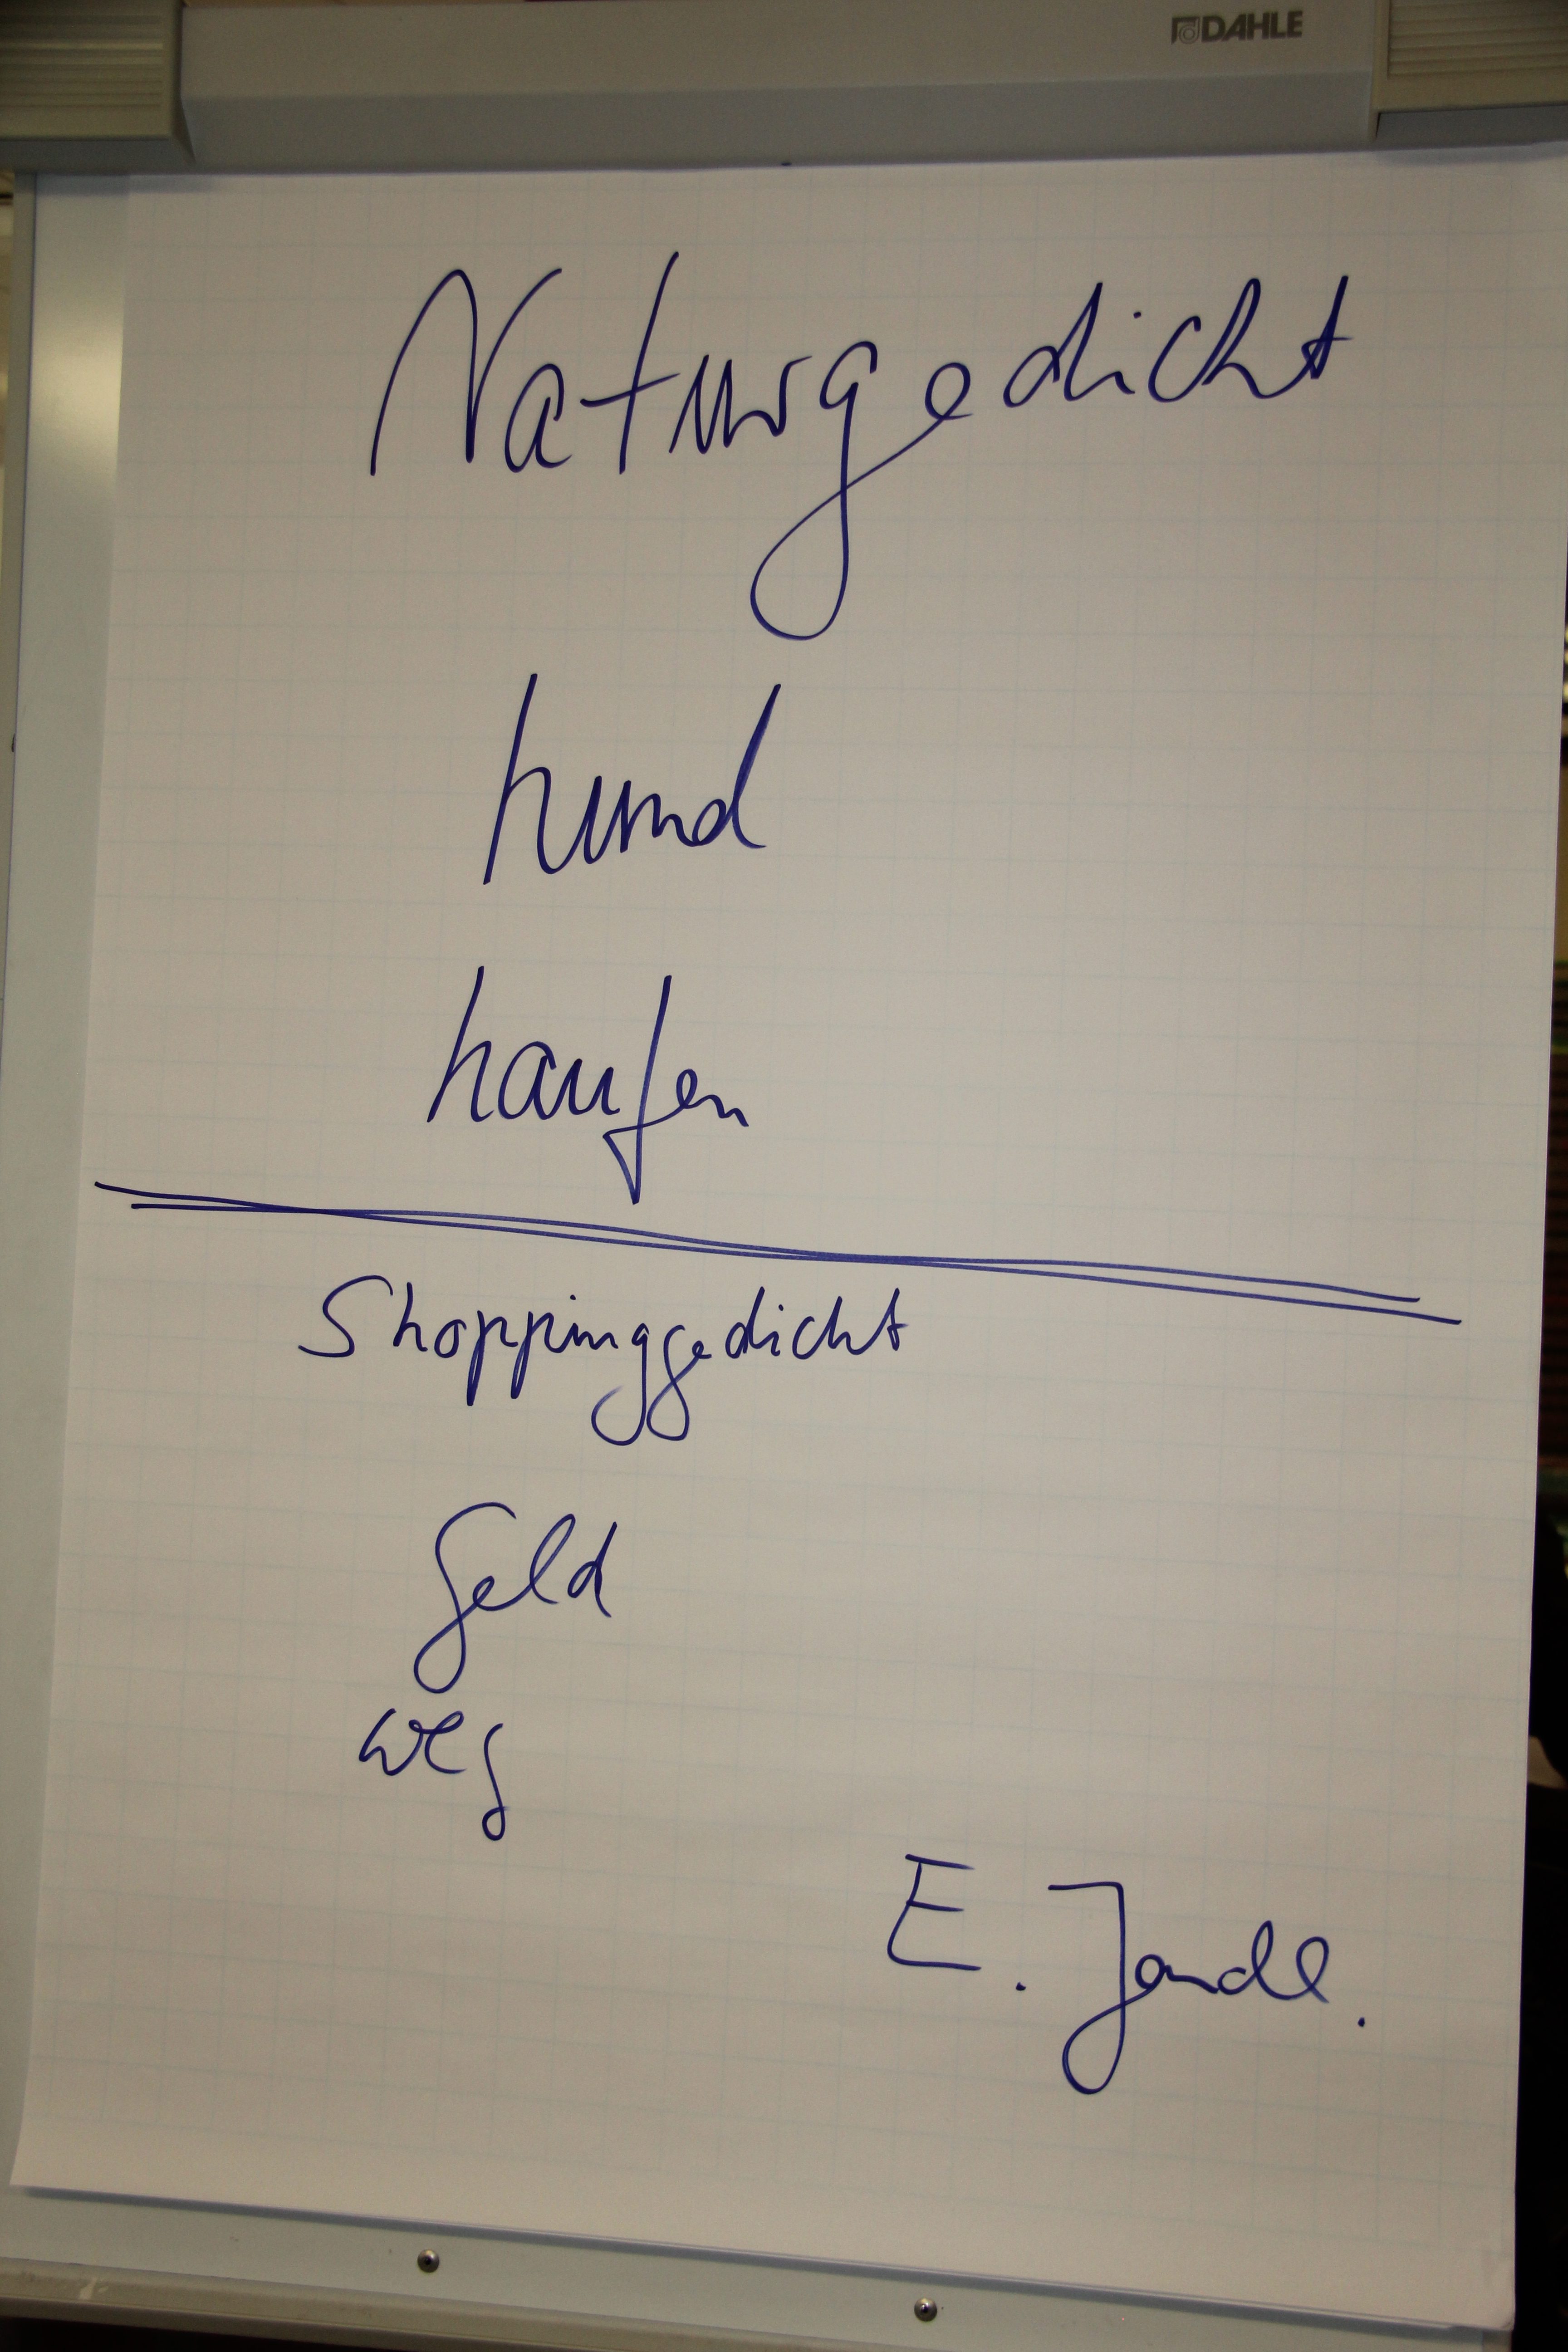 DAHLE
Naturgedicht
hund
haufen
Shoppinggedicht
geld
weg
E. Jandl.